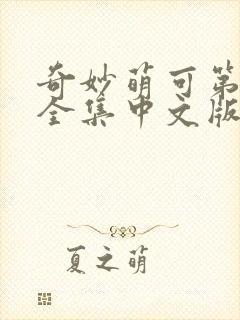 奇妙萌可第
全集中文版
夏之萌